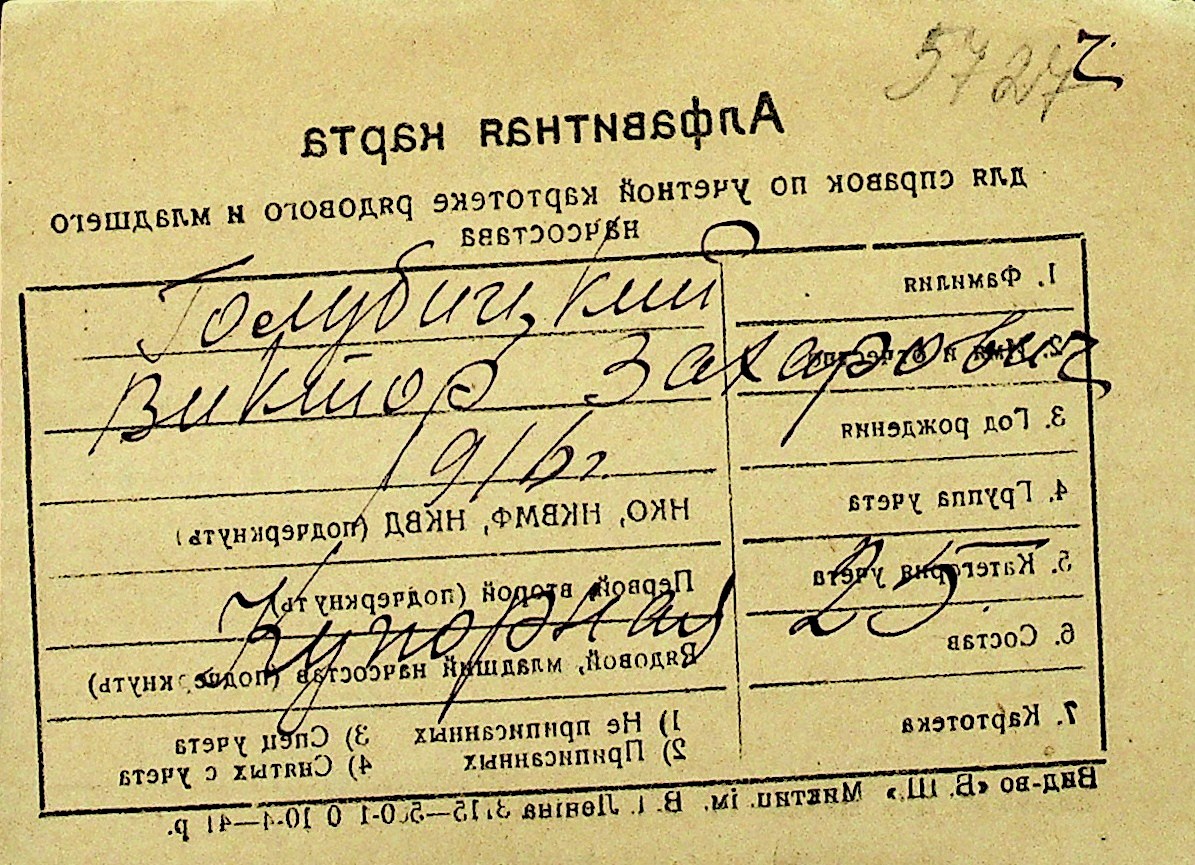 5727 2
Алфавитная карта
для справок по учетной картотеке рядового и младшего
начсостава
1. Фамилия
Голубицкий
2. Имя и отчество
Виктор Захарович
3. Год рождения
1916 г
4. Группа учета
НКО, НКВМФ, НКВД (подчеркнуть)
5. Категория учета
Первой, второй (подчеркнуть)
Купорная 25
6. Состав
Рядовой, младший начсостав (подчеркнуть)
7. Картотека
1) Не приписанных 3) Спец учета
2) Приписанных 4) Снятых с учета
Вид-во «Б. Ш.» ім. В. І. Леніна